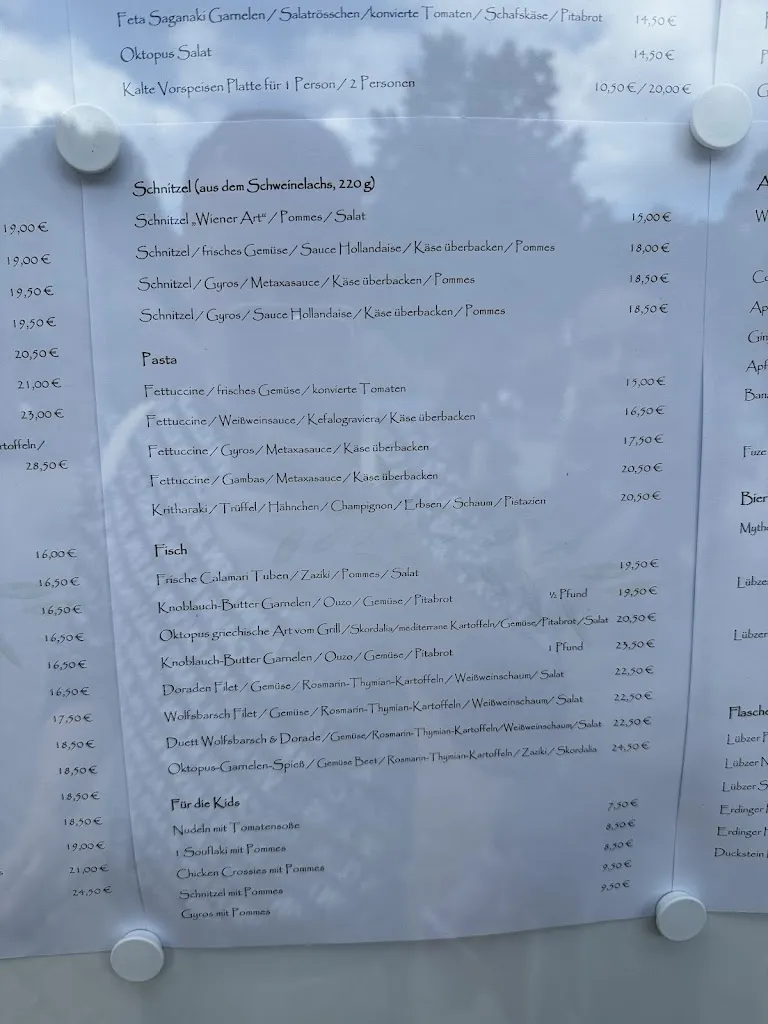 Feta Saganaki Garnelen / Salatrösschen /konvierte Tomaten / Schafskäse / Pitabrot 14,50 €
Oktopus Salat 14,50 €
Kalte Vorspeisen Platte für 1 Person / 2 Personen 10,50 € / 20,00 €
Schnitzel (aus dem Schweinelachs, 220 g)
Schnitzel „Wiener Art“ / Pommes / Salat 15,00 €
Schnitzel / frisches Gemüse / Sauce Hollandaise / Käse überbacken / Pommes 18,00 €
Schnitzel / Gyros / Metaxasauce / Käse überbacken / Pommes 18,50 €
Schnitzel / Gyros / Sauce Hollandaise / Käse überbacken / Pommes 18,50 €
Pasta
Fettuccine / frisches Gemüse / konvierte Tomaten 15,00 €
Fettuccine / Weißweinsauce / Kefalograviera / Käse überbacken 16,50 €
Fettuccine / Gyros / Metaxasauce / Käse überbacken 17,50 €
Fettuccine / Gambas / Metaxasauce / Käse überbacken 20,50 €
Kritharaki / Trüffel / Hähnchen / Champignon / Erbsen / Schaum / Pistazien 20,50 €
Fisch
Frische Calamari Tuben / Zaziki / Pommes / Salat 19,50 €
Knoblauch-Butter Garnelen / Ouzo / Gemüse / Pitabrot ½ Pfund 19,50 €
Oktopus griechische Art vom Grill / Skordalia/mediterrane Kartoffeln/Gemüse/Pitabrot/Salat 20,50 €
Knoblauch-Butter Garnelen / Ouzo / Gemüse / Pitabrot 1 Pfund 23,50 €
Doraden Filet / Gemüse / Rosmarin-Thymian-Kartoffeln / Weißweinschaum/ Salat 22,50 €
Wolfsbarsch Filet / Gemüse / Rosmarin-Thymian-Kartoffeln / Weißweinschaum/ Salat 22,50 €
Duett Wolfsbarsch & Dorade /Gemüse/Rosmarin-Thymian-Kartoffeln/Weißweinschaum/Salat 22,50 €
Oktopus-Garnelen-Spieß / Gemüse Beet / Rosmarin-Thymian-Kartoffeln / Zaziki / Skordalia 24,50 €
Für die Kids
Nudeln mit Tomatensoße 7,50 €
1 Souflaki mit Pommes 8,50 €
Chicken Crossies mit Pommes 8,50 €
Schnitzel mit Pommes 9,50 €
Gyros mit Pommes 9,50 €
19,00 €
19,00 €
19,50 €
19,50 €
20,50 €
21,00 €
23,00 €
rtoffeln /
28,50 €
16,00 €
16,50 €
16,50 €
16,50 €
16,50 €
16,50 €
17,50 €
18,50 €
18,50 €
18,50 €
18,50 €
19,00 €
21,00 €
24,50 €
A
W
Co
Ap
Gin
Apf
Ban
Fuze
Bier
Myth
Lübze
Lübzer
Flasche
Lübzer P
Lübzer N
Lübzer S
Erdinger
Erdinger
Duckstein